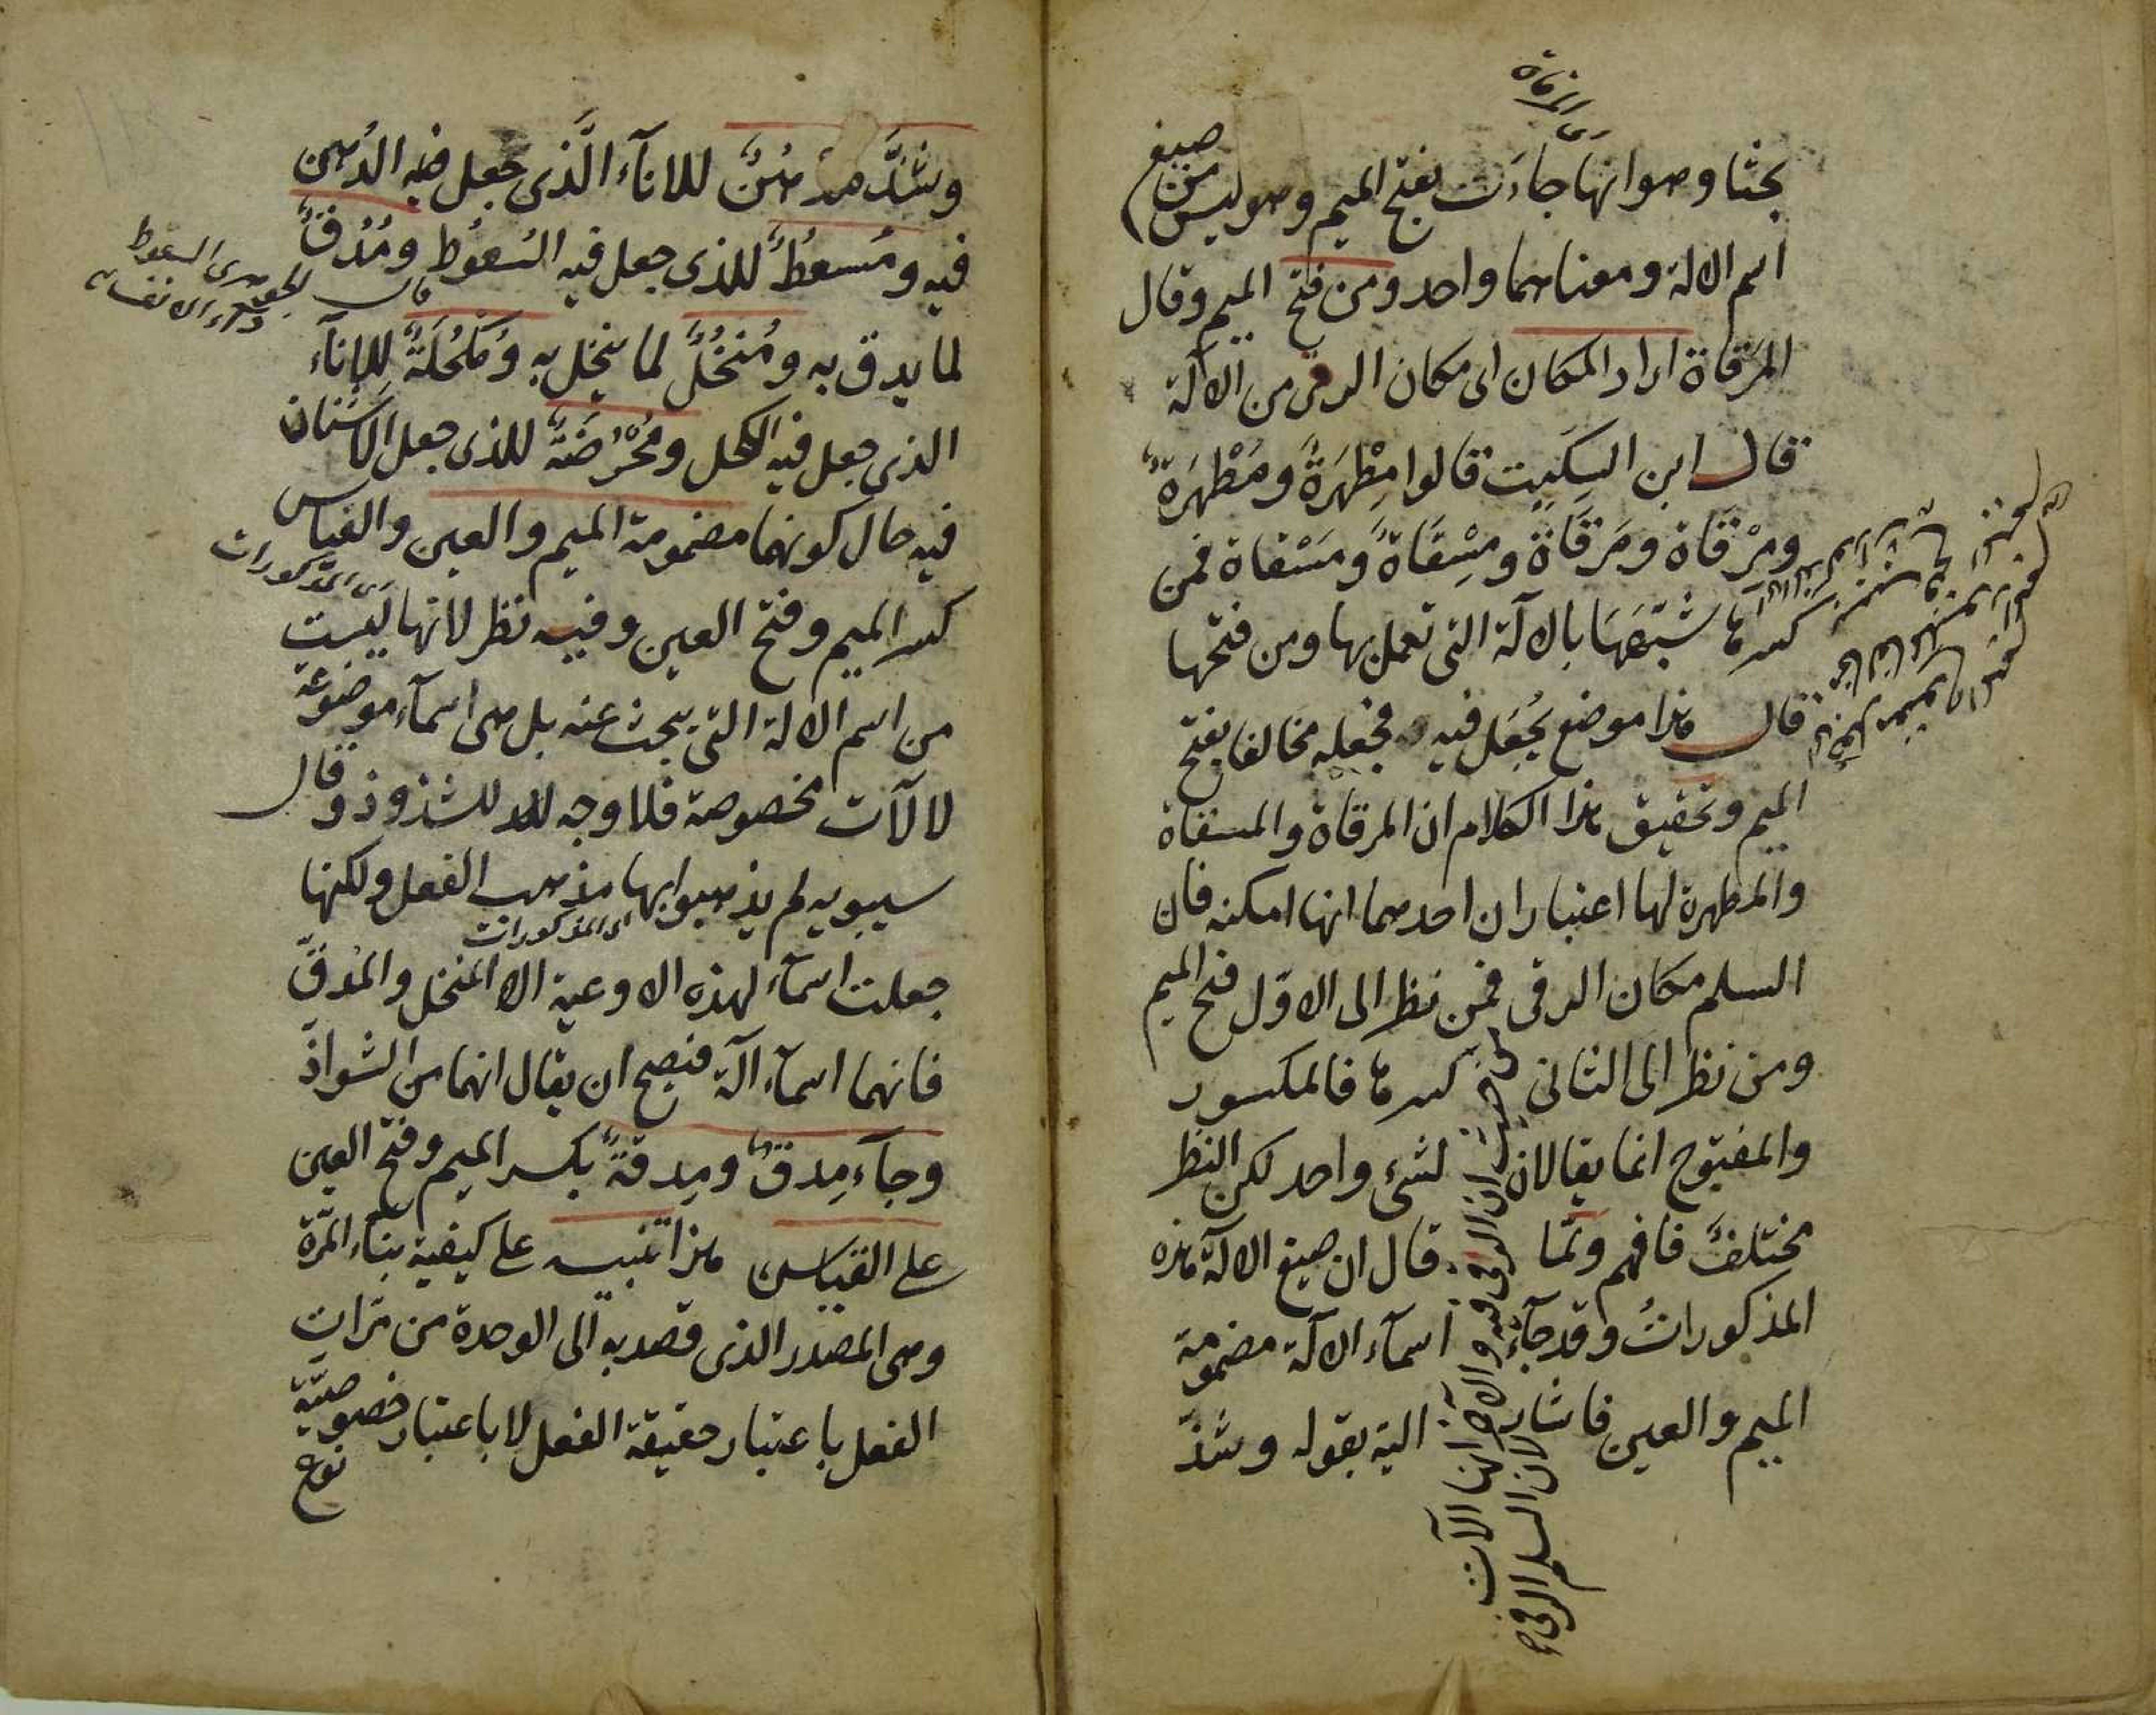 بحثا وهو انها جاءت بفتح الميم وهو ليس من صيغ
اسم الالة ومعناهما واحد ومن فتح الميم وقال
المرقاة اراد المكان اى مكان الرقى من الآلة
قال ابن السكيت قالوا مِطْهَرَةٌ ومَطْهَرَةٌ
ومِرْقَاة ومَرقَاةٌ ومِسْقَاةٌ ومَسْقاة فمن
كسرها شبّهَهَا بالآلة التى تعمل بها ومن فتحها
قال هذا موضع يُجعَل فيه فجعله مخالفا بفتح
الميم وتحقيق هذا الكلام ان المرقاة والمسقاة
والمطهرة لها اعتباران احدهما انها امكنه فان
السلم مكان الرقى فمن نظر الى الاوّل فتح الميم
ومن نظر الى الثانى كسرها فالمكسور
والمفتوح انما يقالان لشىء واحد لكن النظر
مختلفٌ فافهم ولمّا قال ان صيغ الالة هذه
المذكوراتُ وقد جآءت اسمآء الآلة مضمومة
الميم والعين فاشار اليه بقوله وشذّ
اى المرقاة
من حيث ان الرقى فيه والآخر انها الآت
لان السلم الرقى
وشذَّ مُدْهُنٌ للانآء الَّذى جعل فيه الدُهن
فيه ومُسعُطٌ للذى جعل فيه السَعُوُط ومُدُقٌّ
لما يدق به ومُنْخُلٌ لما ينخل به ومُكْحُلَةٌ لِلإناء
الذى جعل فيه الكحل ومُحْرُضَةٌ للذى جعل الاشنان
فيه حال كونهما مضمومة الميم والعين والقياس
كسر الميم وفتح العين وفيه نظر لانها ليست
اى المذكورات
من اسم الالة التى يبحث عنه بل هى اسمآء موضوعة
لالآت مخصوصة فلا وجه للشذوذ وقال
سيبويه لم يذهبوا بها مذهب الفعل ولكنها
اى المذكورات
جعلت اسمآء لهذه الاوعية الا المنخل والمُدقّ
فانهما اسمآء آلة فيصح ان يقال انهما من الشواذّ
وجآء مِدقٌّ ومِدقةٌ بكسر الميم وفتح العين
على القياس هذا تنبيه على كيفية بناء المَرّة
وهى المصدر الذى قصد به الى الوحدة من مَرّات
الفعل باعتبار حقيقة الفعل لا باعتبار خصوصيّة
نوع